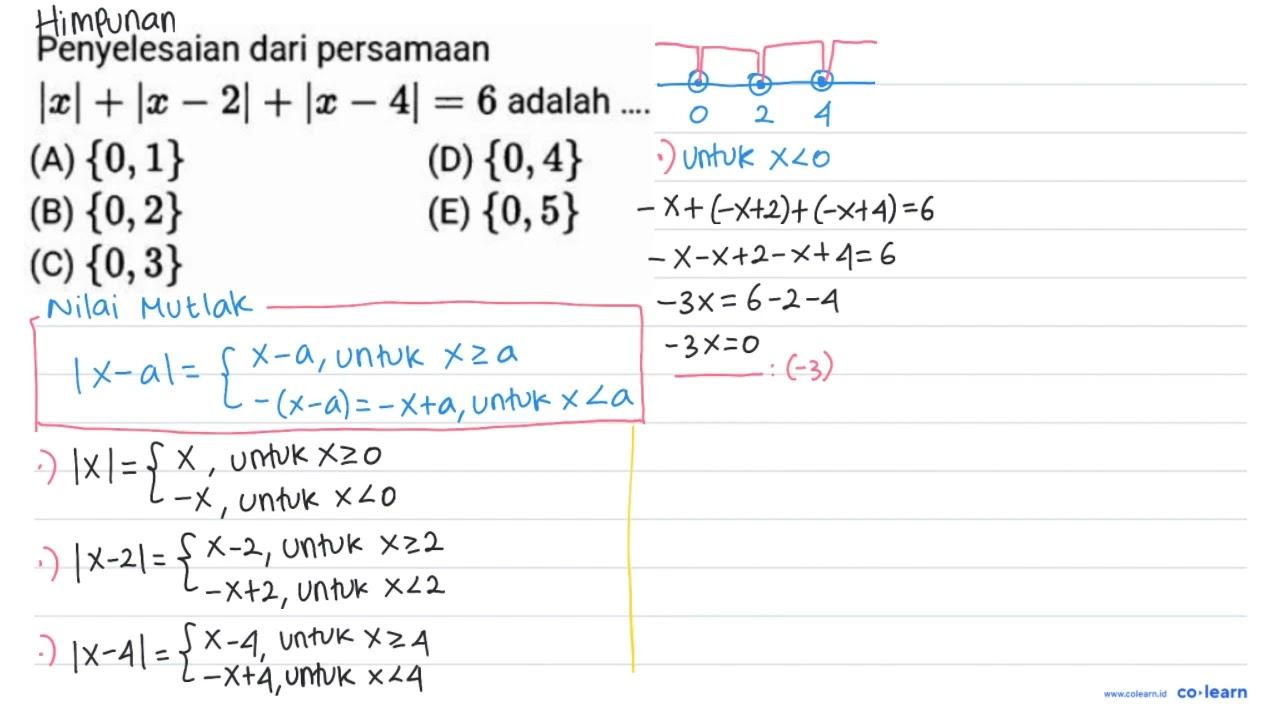 Himpunan
Penyelesaian dari persamaan
|x| + |x − 2| + |x − 4| = 6 adalah ....
(A) {0, 1}
(B) {0, 2}
(C) {0, 3}
(D) {0, 4}
(E) {0, 5}
Nilai Mutlak
|x-a| = { x-a, untuk x ≥ a
-(x-a) = -x+a, untuk x < a
·) |x| = { x, untuk x ≥ 0
-x, untuk x < 0
·) |x-2| = { x-2, untuk x ≥ 2
-x+2, untuk x < 2
·) |x-4| = { x-4, untuk x ≥ 4
-x+4, untuk x < 4
0 2 4
·) untuk x < 0
-x + (-x+2) + (-x+4) = 6
-x-x+2-x+4 = 6
-3x = 6-2-4
-3x = 0
: (-3)
www.colearn.id co·learn